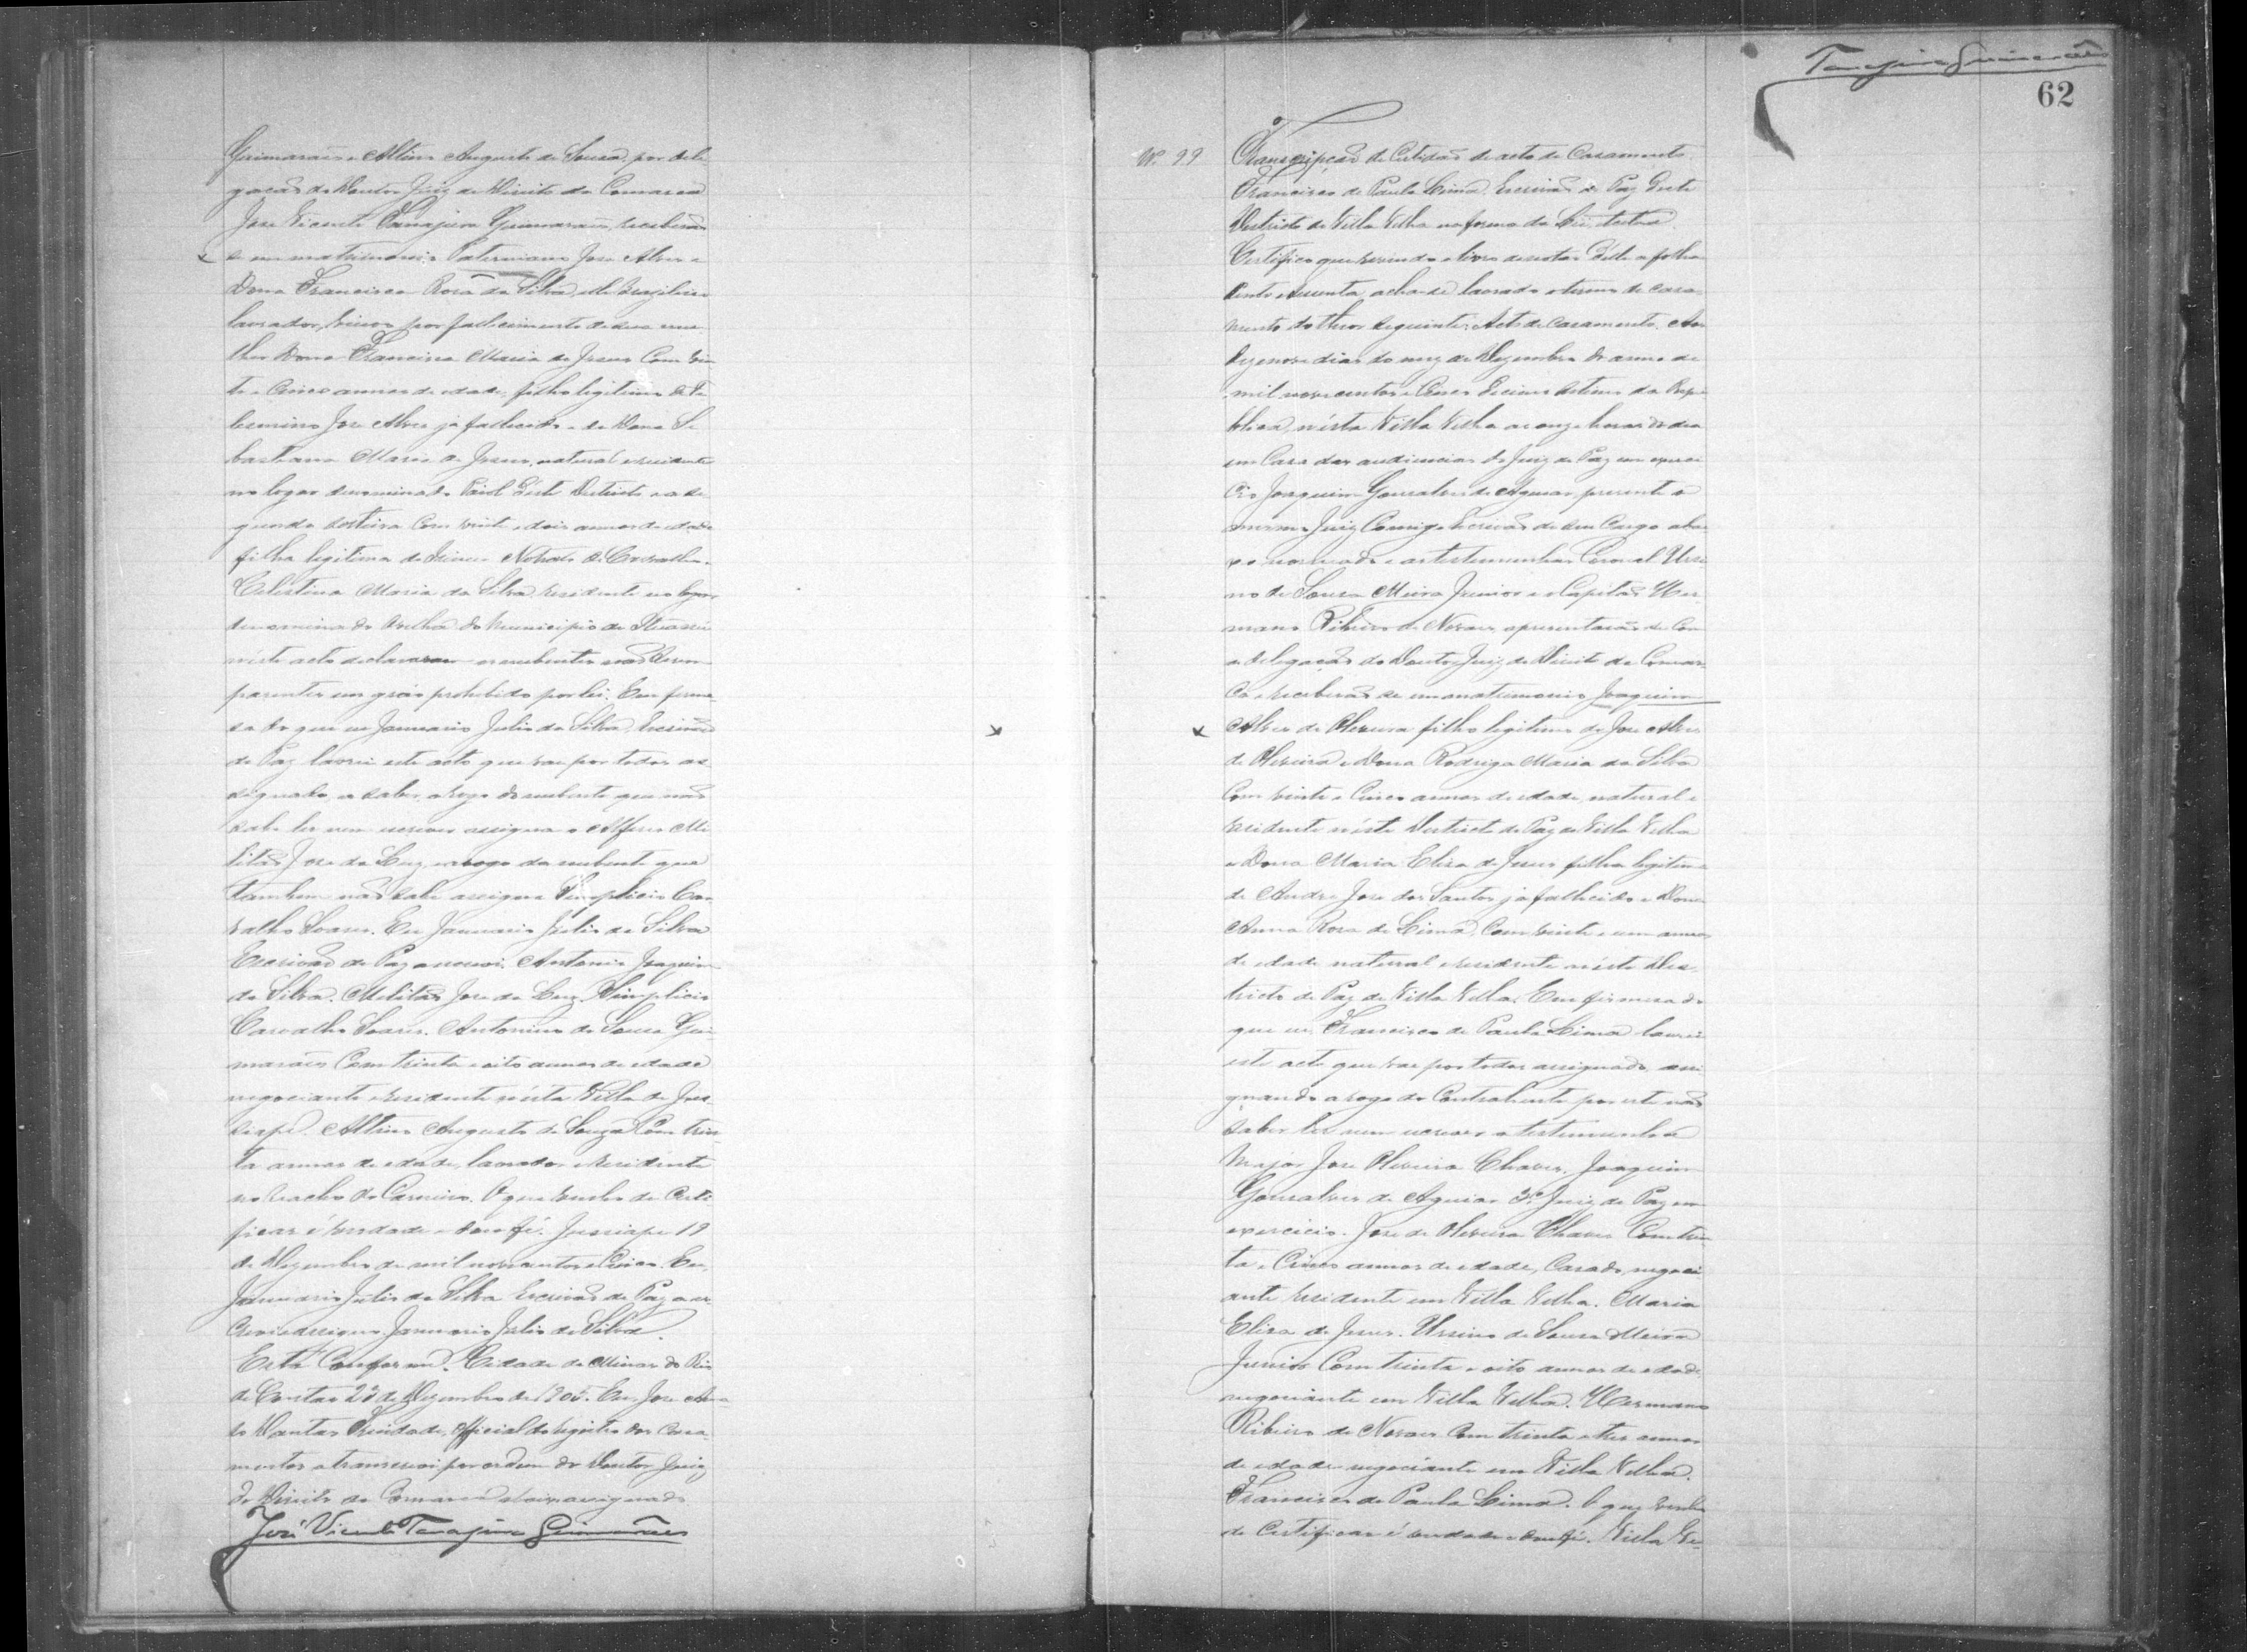 Guimarães e Altino Augusto de Sousa, por dele
gação do Doutor Juiz de Direito da Comarca
José Vicente Tanajura Guimarães, receberão
se em matrimonio Paterniano José Alves e
Dona Francisca Rosa da Silva, elle brazileiro
lavrador, viuvo por fallecimento de sua mu
lher Dona Francisca Maria de Jesus com vin
te e cinco annos de edade, filho legitimo de
José Alves já fallecido e de Dona Se
bastiana Maria de Jesus, natural e residente
no logar denominado d'este Districto e a se
gunda solteira com vinte e dois annos de edade
filha legitima de de Carvalho e
Celestina Maria da Silva residente no logar
denominado do Municipio de
n'este acto declararam os nubentes não serem
parentes em gráo prohibido por lei. Em firme
sa do que eu Januario Julio da Silva, Escrivão
de Paz lavrei este acto que vae por todos as
signado, a saber, a rogo do nubente que não
sabe ler nem escrever assigna o Alferes Me
litão José da Luz, a rogo da nubente que
tambem não sabe assigna Simplicio Car
valho Soares. Eu Januario Julio da Silva
Escrivão de Paz o escrevi. Antonio Joaquim
da Silva. Melitão José da Luz. Simplicio
Carvalho Soares. Antonino de Sousa Gui
marães com trinta e oito annos de edade
negociante e residente nésta Villa de Jus
siape. Altino Augusto de Souza com trin
ta annos de edade, lavrador e residente
no Riacho do Carneiro. O que venho de certi
ficar é verdade e dou fé. Jussiape 19
de Dezembro de mil novecentos e cinco. Eu,
Januario Julio da Silva Escrivão de Paz o es
crevi e assigno Januario Julio da Silva.
Está conforme. Cidade de Minas do Rio
de Contas 23 de Dezembro de 1905. Eu, José
Dantas Trindade, Official do registro dos casa
mentos a transcrevi por ordem do Doutor Juiz
de Direito da Comarca abaixo assignado
José Vicente Tanajura Guimarães
Tanajura Guimarães
62
Nº 99
Transcripção de Certidão de acto de Casamento
Francisco de Paula Lima, Escrivão de Paz deste
Districto de Villa Velha na forma da Lei, etcetera
Certifico que revendo o livro de notas d'elle a folha
cento e sessenta acha-se lavrado o termo de casa
mento do theor seguinte: Acto de casamento. Aos
dezenove dias do mez de Dezembro do anno de
mil novecentos e cinco decimo setimo da Repu
blica, n'ésta Villa Velha as onze horas do dia
em Casa das audiencias do Juiz de Paz em exerci
cio Joaquim Gonsalves de Aguiar, presente o
mesmo Juiz Comigo Escrivão de seu cargo abai
xo nomeado e as testemunhas Coronel Ursi
no de Sousa Meira Junior e o Capitão Her
mano Ribeiro de Novaes, apresentarão-se com
a delegação do Doutor Juiz de Direito da Comar
ca e receberão se em matrimonio Joaquim
Alves de Oliveira filho legitimo de José Alves
de Oliveira e Dona Rodriga Maria da Silva
com vinte e cinco annos de edade, natural e
residente néste Districto de Paz de Villa Velha
e Dona Maria Eliza de Jesus filha legitima
de André José dos Santos já fallecido e Dona
Anna Rosa de Lima, com vinte e um annos
de edade natural e residente néste Dis
tricto de Paz de Villa Velha. Em firmesa do
que eu Francisco de Paula Lima lavrei
este acto que vae por todos assignado, assi
gnando a rogo do Contrahente por este não
saber ler nem escrever a testemunha
Major José Oliveira Chaves. Joaquim
Gonsalves de Aguiar 3º Juiz de Paz em
exercicio. José de Oliveira Chaves com trin
ta e cinco annos de edade, casado, negoci
ante residente em Villa Velha. Maria
Eliza de Jesus. Ursino de Sousa Meira
Junior com trinta e oito annos de edade
negociante em Villa Velha. Hermano
Ribeiro de Novaes com trinta e tres annos
de edade negociante em Villa Velha.
Francisco de Paula Lima. O que venho
de certificar é verdade e dou fé. Villa Ve-